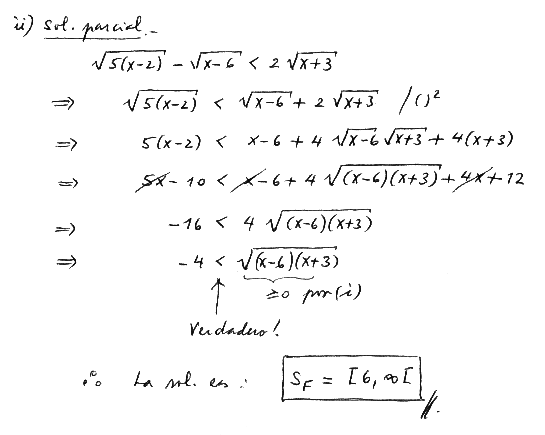 ii) sol. parcial.-
√5(x-2) - √x-6 < 2 √x+3
⇒ √5(x-2) < √x-6 + 2 √x+3 / ()²
⇒ 5(x-2) < x-6 + 4 √x-6 √x+3 + 4(x+3)
⇒ 5x - 10 < x - 6 + 4 √(x-6)(x+3) + 4x + 12
⇒ -16 < 4 √(x-6)(x+3)
⇒ -4 < √(x-6)(x+3)
↑ ≥0 por (i)
Verdadero!
∴ La sol. es : S_F = [6, ∞[ //.